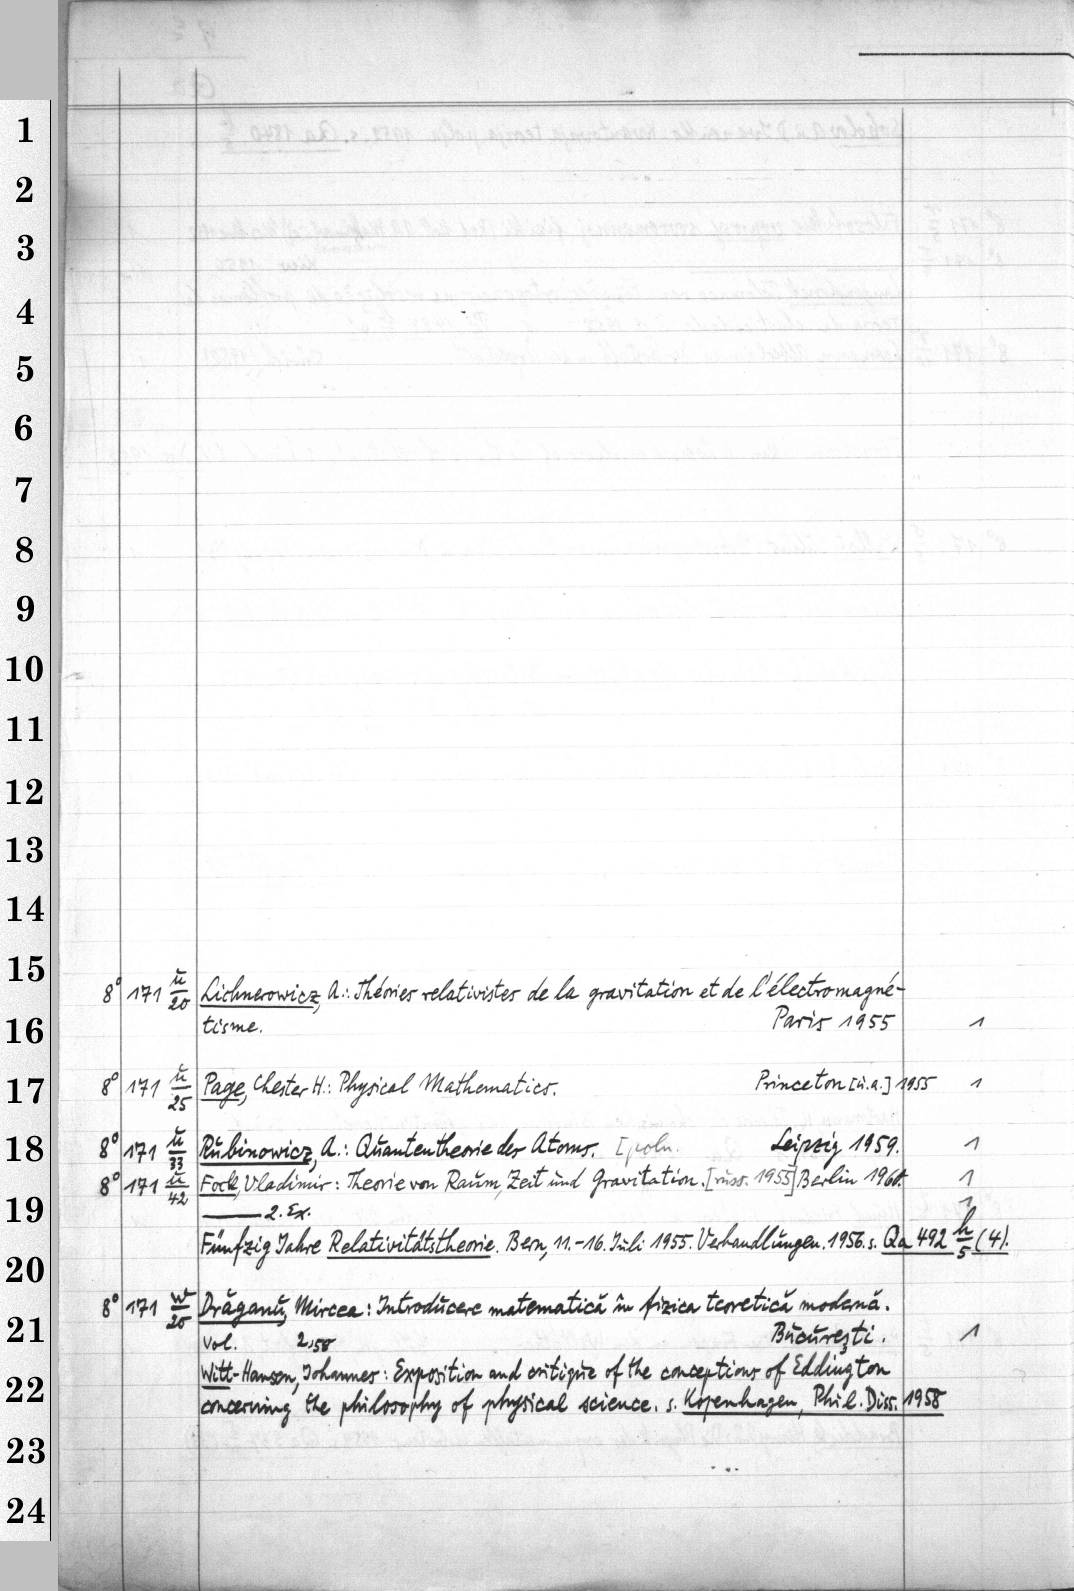 1
2
3
4
5
6
7
8
9
10
11
12
13
14
15
16
17
18
19
20
21
22
23
24
8° 171 u/20 Lichnerowicz, A.: Théories relativistes de la gravitation et de l'électromagné-
tisme. Paris 1955 1
8° 171 u/25 Page, Chester H.: Physical Mathematics. Princeton [u.a.] 1955 1
8° 171 u/33 Rubinowicz, A.: Quantentheorie des Atoms. [poln. Leipzig 1959. 1
8° 171 u/42 Fock, Vladimir: Theorie von Raum, Zeit und Gravitation. [russ. 1955] Berlin 1960. 1
—— 2. Ex. 1
Fünfzig Jahre Relativitätstheorie. Bern, 11.-16. Juli 1955. Verhandlungen. 1956. s. Qa 492 h/5 (4).
8° 171 w/20 Drăganu, Mircea: Introducere matematică în fizica teoretică modernă.
Vol. 2,58 Bucureşti. 1
Witt-Hansen, Johannes: Exposition and critique of the conceptions of Eddington
concerning the philosophy of physical science. s. Kopenhagen, Phil. Diss. 1958